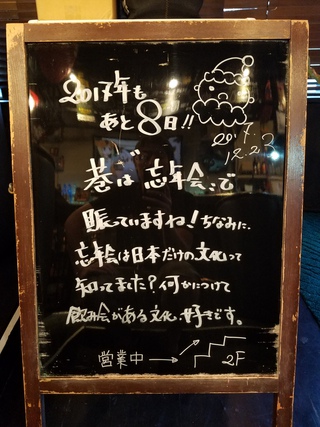 2017年も
あと8日!!
2017.
12.23
巷は忘年会で
賑っていますね!ちなみに、
忘年会は日本だけの文化って
知ってました?何かにつけて
飲み会がある文化、好きです。
営業中→
2F